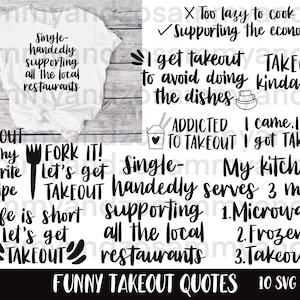 Single-
handedly
supporting
all the local
restaurants
✗ Too lazy to cook
✓ Supporting the econo
I get takeout
to avoid doing
the dishes
TAKE
kinda
ADDICTED
TO TAKEOUT
I came. I
got TAK
OUT
my
rite
pe
FORK IT!
Let's get
TAKEOUT
Single-
handedly
supporting
all the local
restaurants
My kitch
serves 3 m
1. Microwa
2. Frozen
3. Takeou
fe is short
Let's get
TAKEOUT
FUNNY TAKEOUT QUOTES
10 SVG